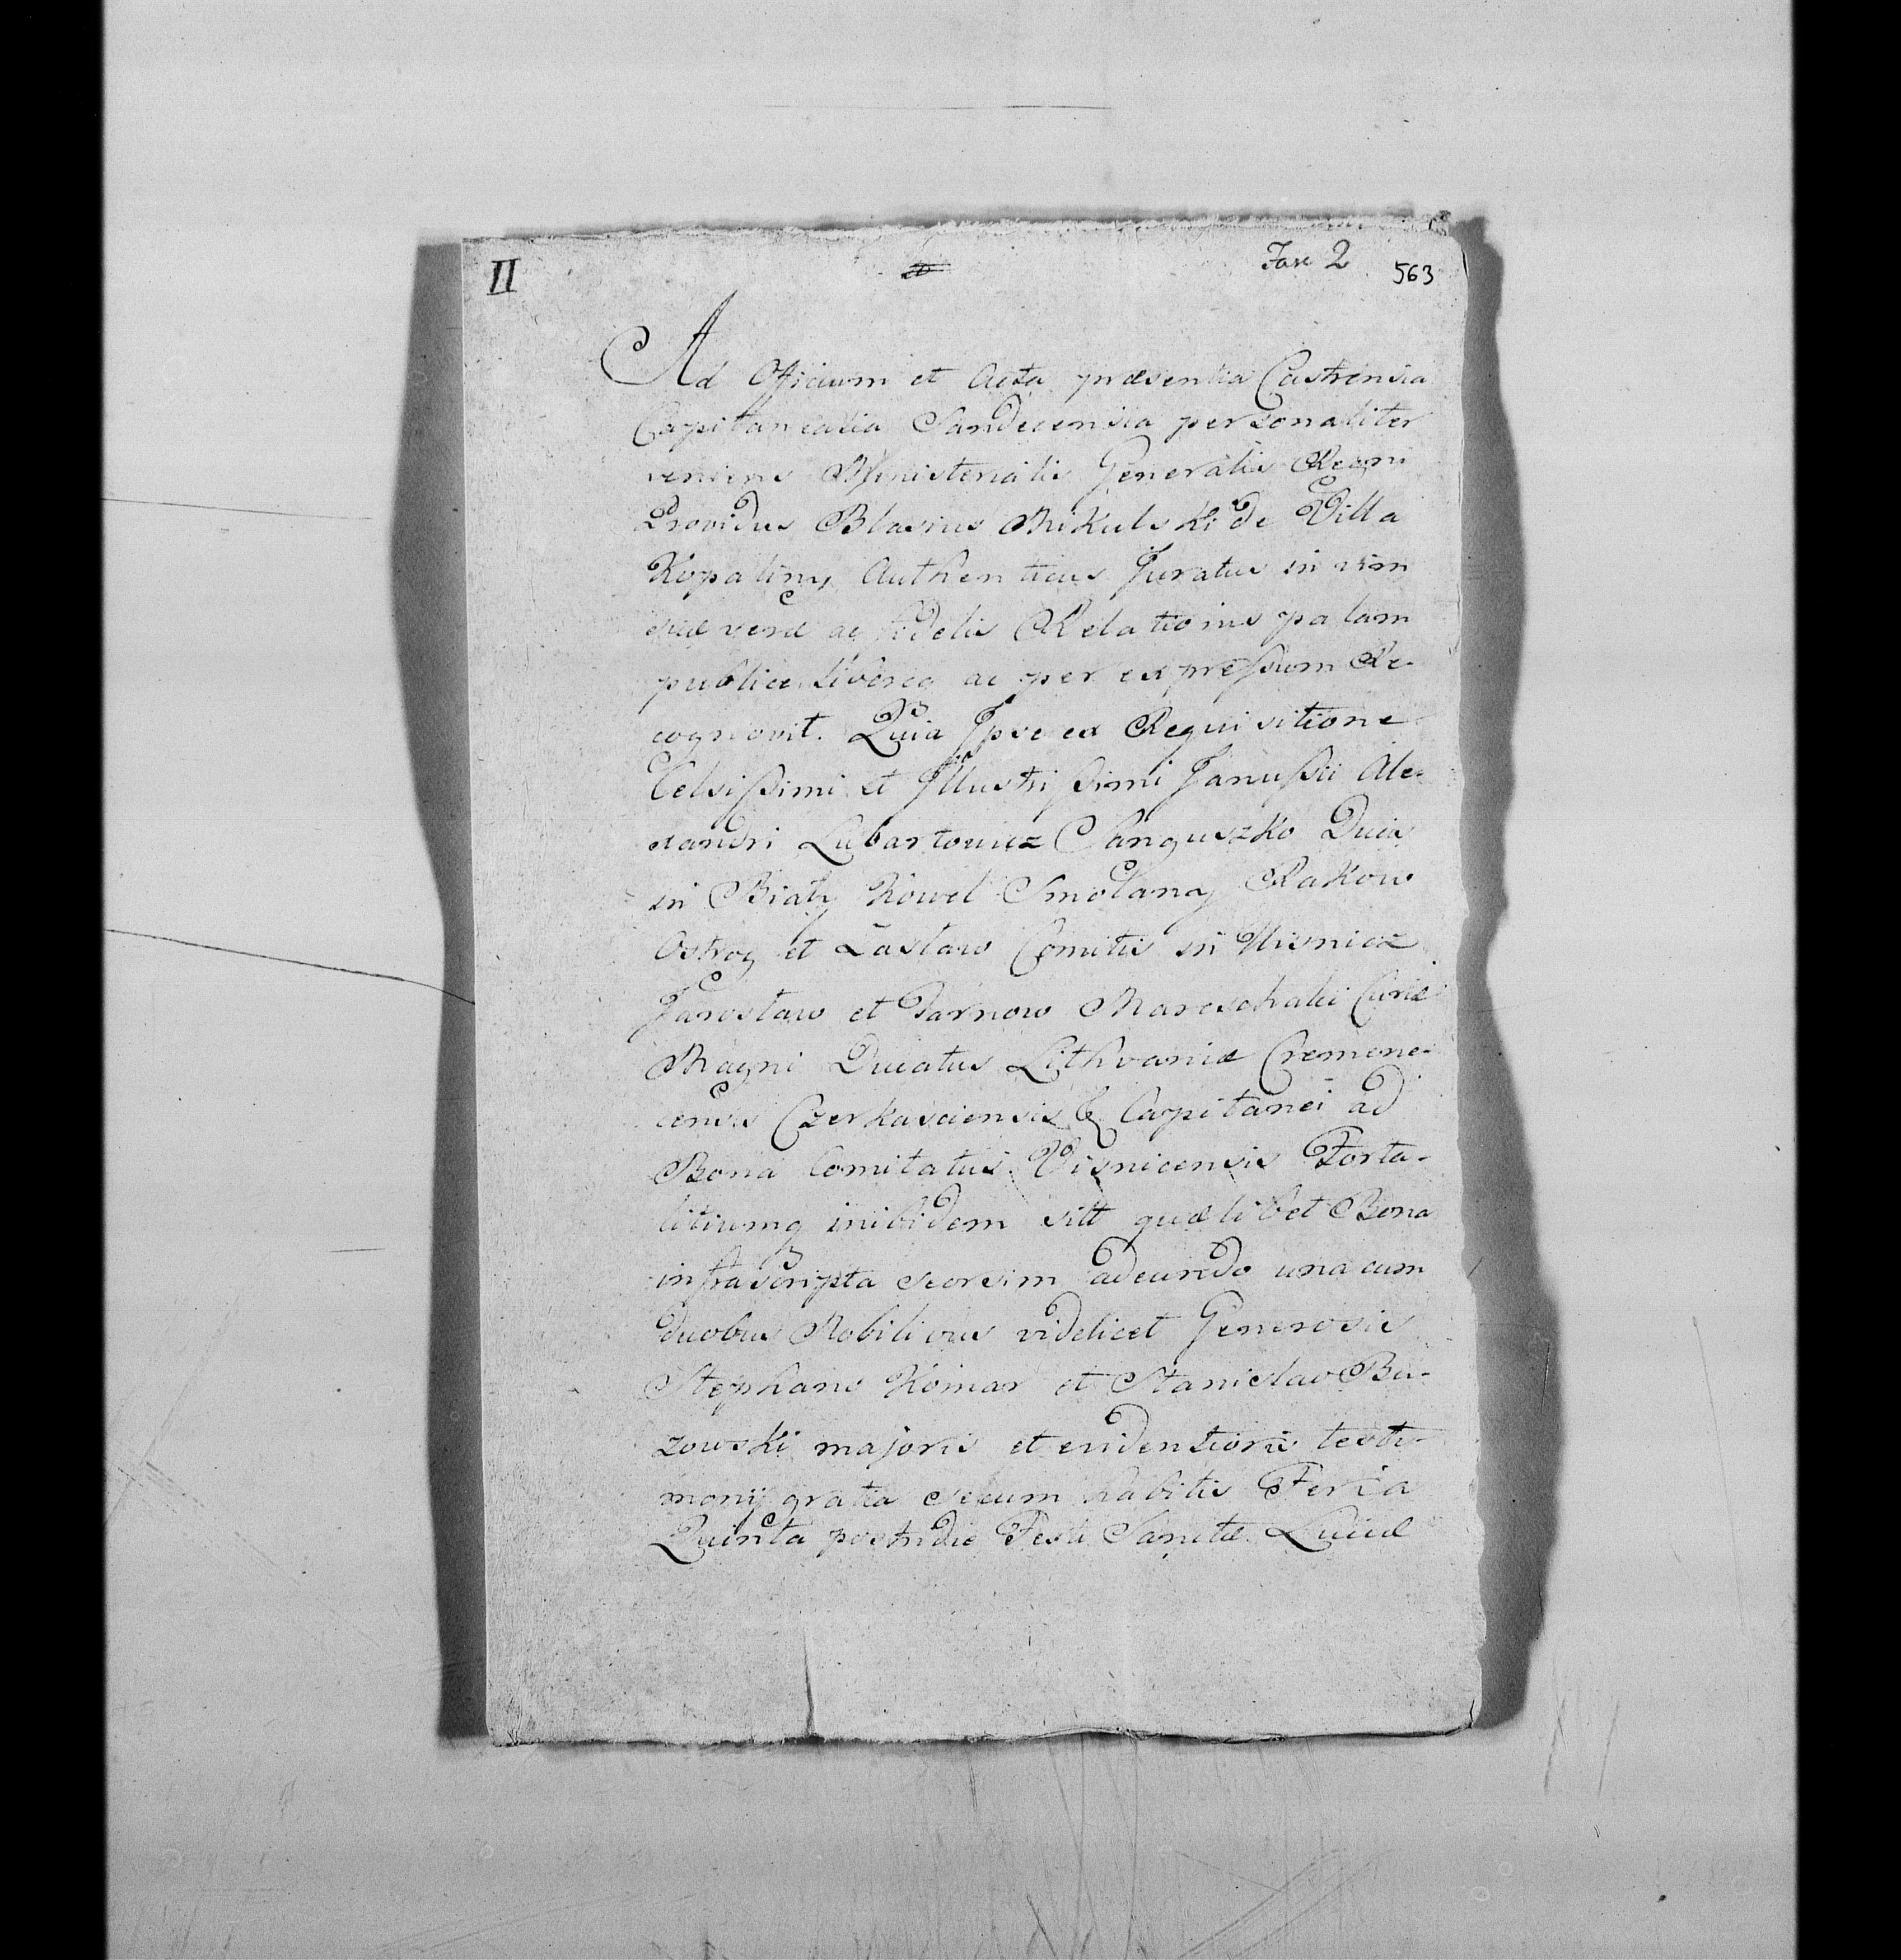 II
Fasc 2 563
Ad Officium et Acta præsentia Castrensia
Capitanealia Sandecensia personaliter
veniens Ministerialis Generalis Regni
Providus Blasius Mikulski de Villa
Kopaliny Authenticus Juratus in vim
suæ veræ ac fidelis Relationis palam
publice libereq ac per expressum Re-
cognovit. Quia Ipse ex Requisitione
Celsissimi et Illustrissimi Janussii Ale-
xandri Lubartowicz Sanguszko Ducis
in Biały Kowel Smolany Rakow
Ostrog et Zasław Comitis in Wisnicz
Jarosław et Tarnow Mareschalci Curiæ
Magni Ducatus Lithvaniæ Cremene-
censis Czerkasciensis & Capitanei ad
Bona Comitatus Visnicensis Forta-
litiumq inibidem sitt quælibet Bona
infrascripta seorsim adeundo una cum
duobus Nobilibus videlicet Generosis
Stephano Komar et Stanislao Bu-
zowski majoris et evidentioris testi-
monij gratia secum habitis Feria
Quinta postridie Festi Sanctæ Luciæ